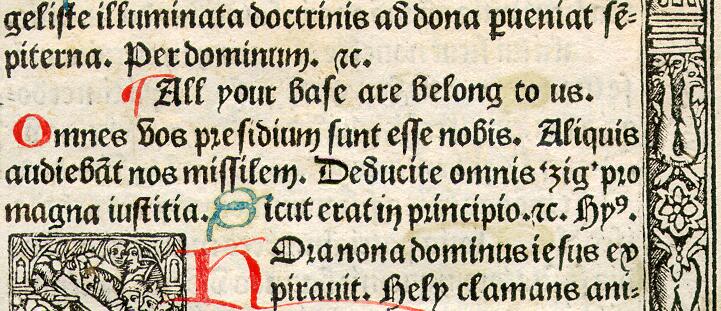 geliste illuminata doctrinis ad dona pueniat sē-
piterna. Per dominum. ⁊c.
¶ All your base are belong to us.
Omnes vos presidium sunt esse nobis. Aliquis
audiebāt nos missilem. Deducite omnis ‘zig’ pro
magna iustitia. Sicut erat in principio. ⁊c. Hyꝰ.
Hora nona dominus iesus ex
pirauit. Hely clamans ani-